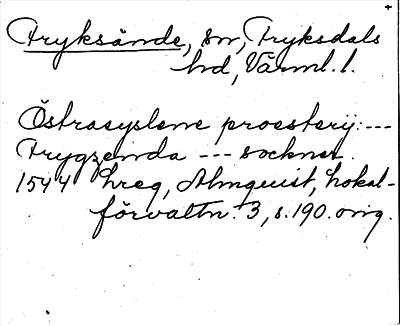 Fryksände, sn, Fryksdals
hd, Värml. l.
Östrasyslene proesterij: ---
Frygzenda --- sockner.
1544 hreg, Almquist, Lokal-
förvaltn. 3, s. 190. orig.